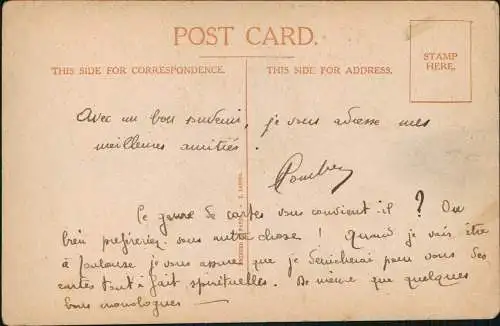 POST CARD.
THIS SIDE FOR CORRESPONDENCE.
THIS SIDE FOR ADDRESS.
STAMP
HERE.
Avec un bon souvenir, je vous adresse mes
meilleures amitiés.
Ce genre de cartes vous convient-il ? Ou
bien préféreriez-vous autre chose ! Quand je vais être
à Toulouse je vous assure que je dénicherai pour vous des
cartes tout à fait spirituelles. De même que quelques
bons monologues —